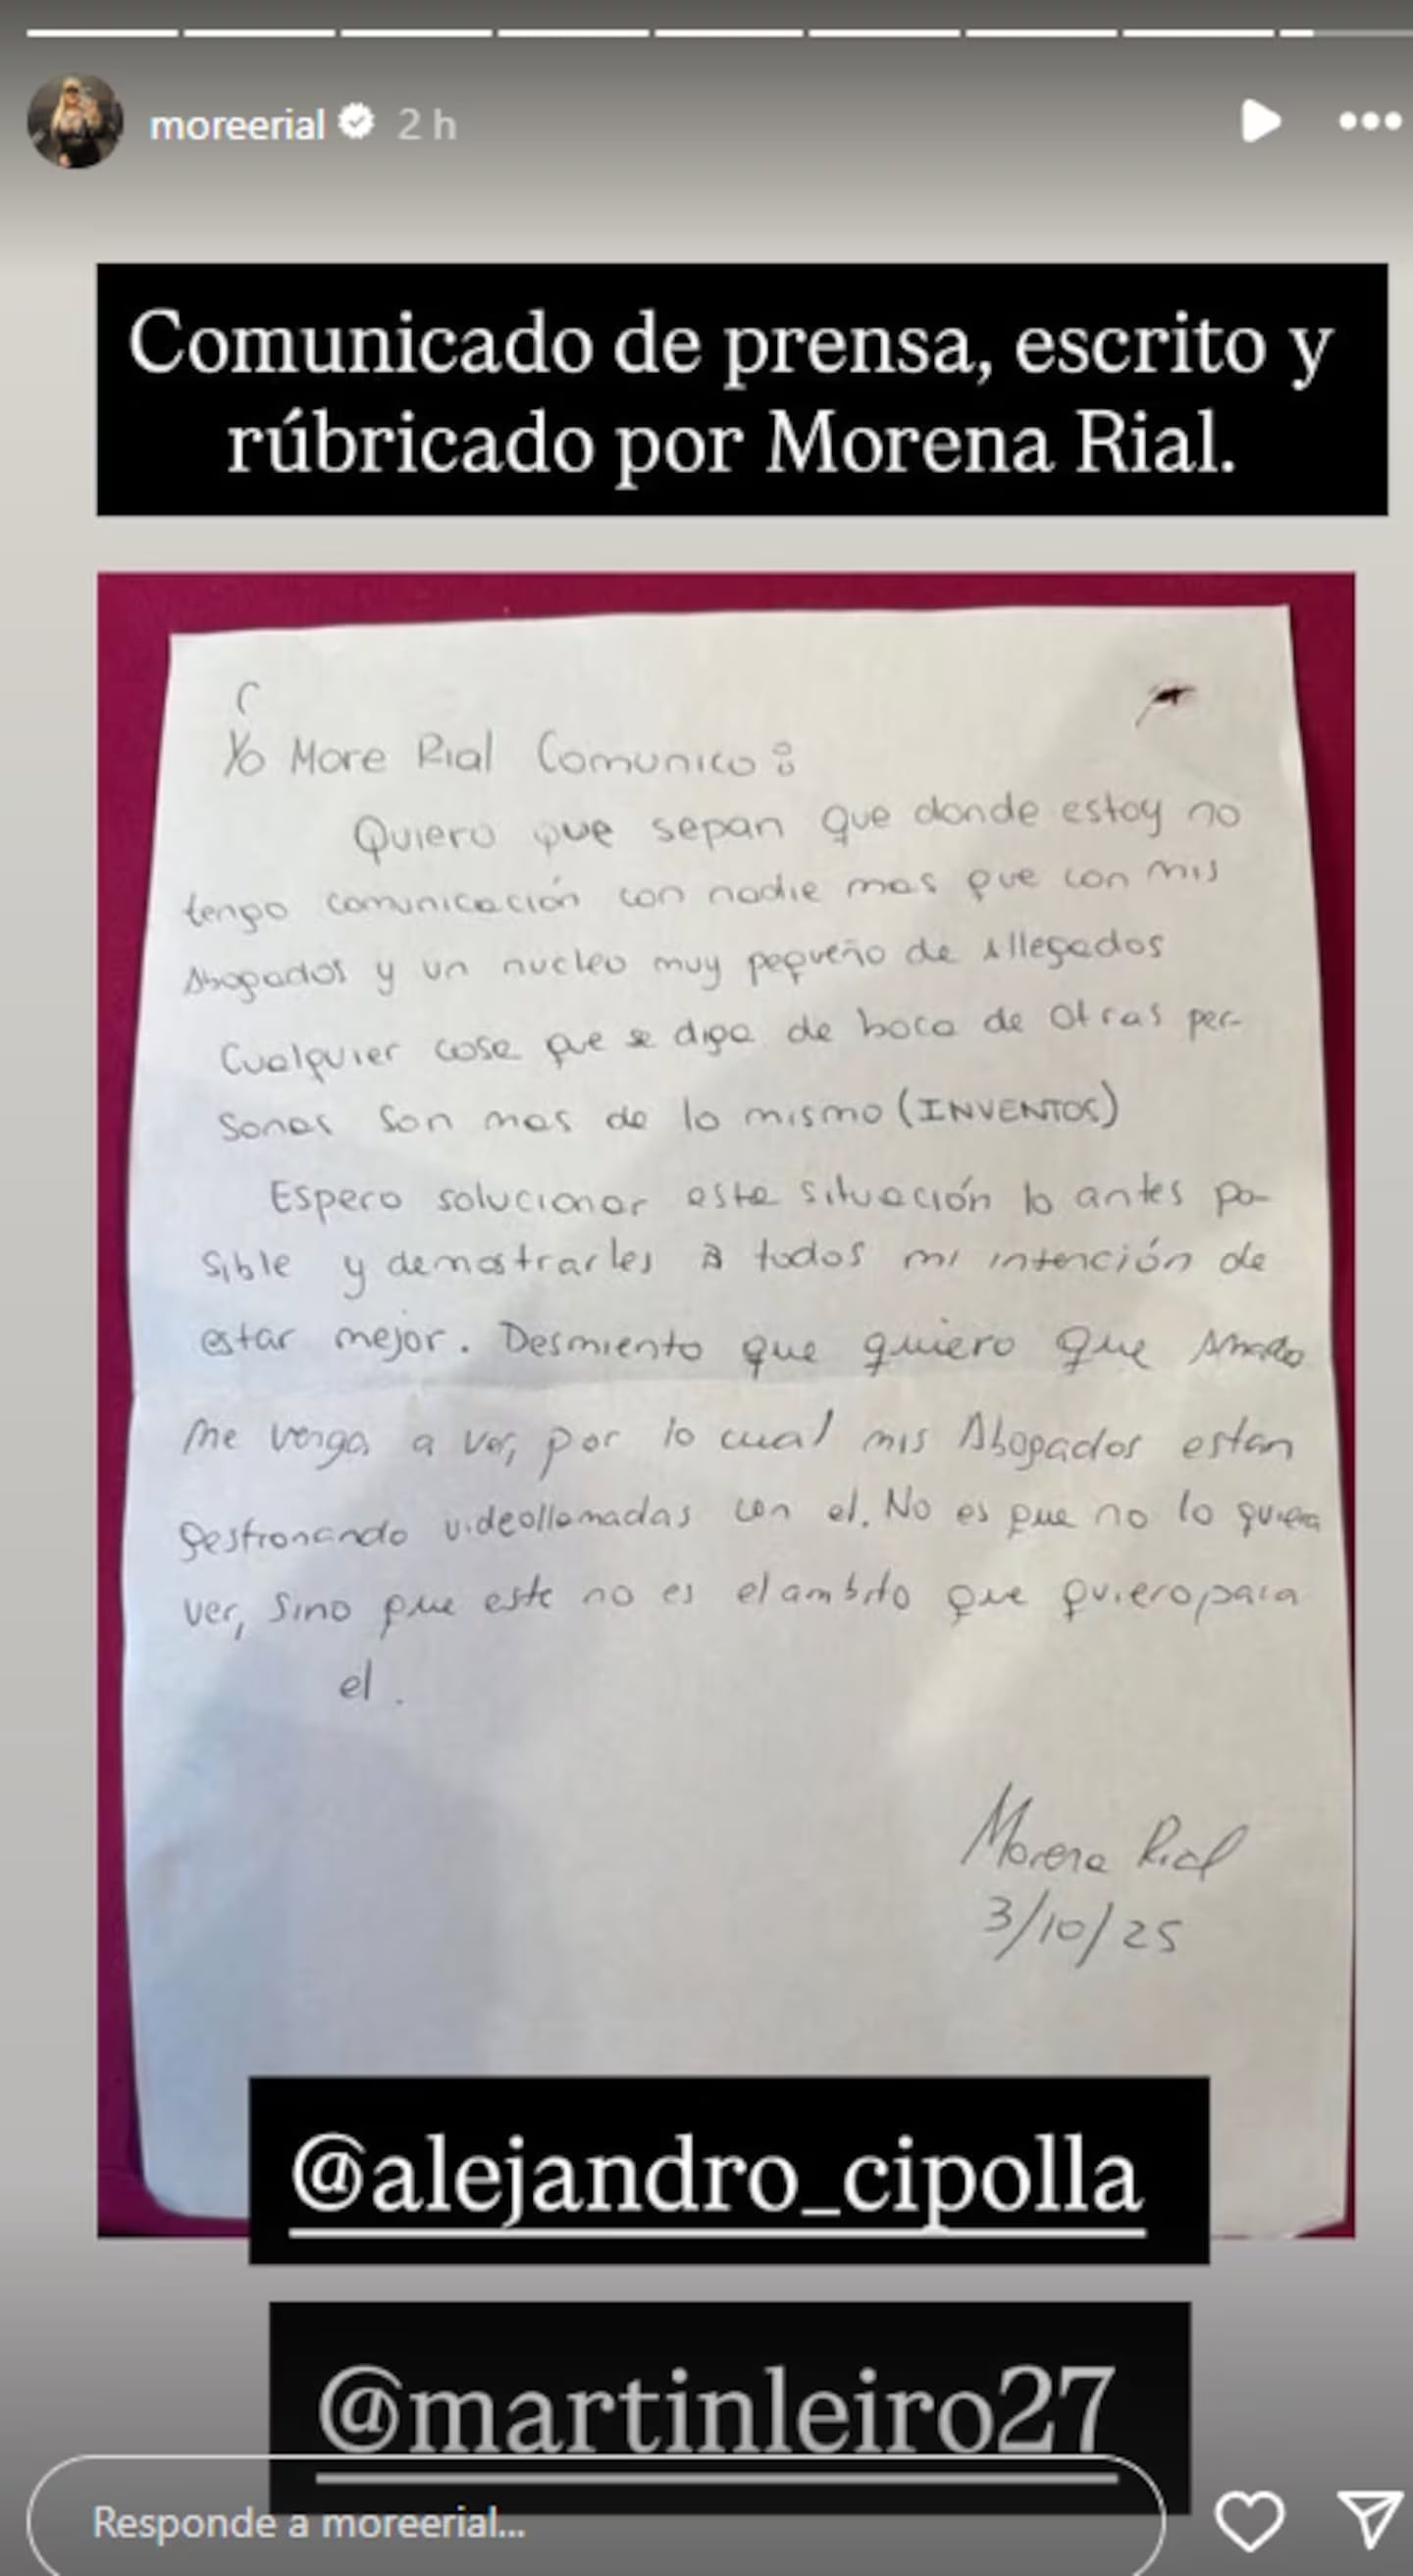 moreerial 2 h
Comunicado de prensa, escrito y
rúbricado por Morena Rial.
Yo More Rial Comunico:
Quiero que sepan que donde estoy no
tengo comunicación con nadie mas que con mis
Abogados y un nucleo muy pequeño de Allegados
Cualquier cosa que se diga de boca de otras per-
sonas son mas de lo mismo (INVENTOS)
Espero solucionar esta situación lo antes po-
sible y demostrarles a todos mi intención de
estar mejor. Desmiento que quiero que Amado
me venga a ver, por lo cual mis Abogados estan
gestionando videollamadas con el. No es que no lo quiera
ver, sino que este no es el ambito que quiero para
el.
Morena Rial
3/10/25
@alejandro_cipolla
@martinleiro27
Responde a moreerial...